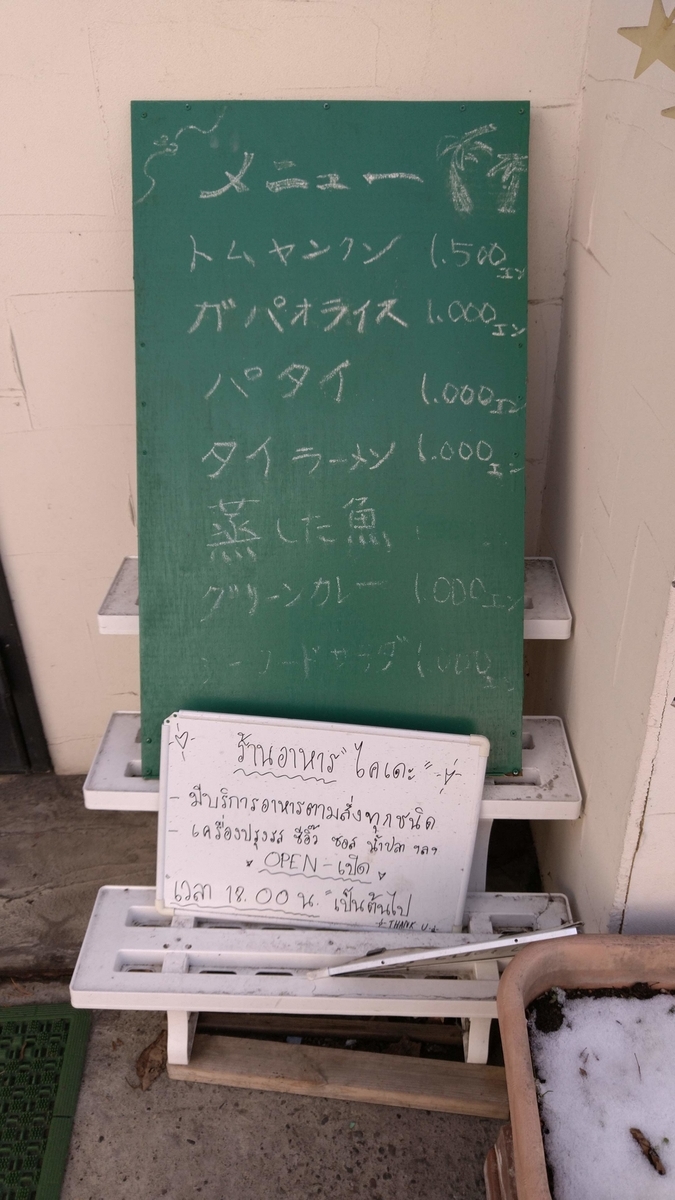 メニュー
トムヤンクン 1.500エン
ガパオライス 1.000エン
パタイ 1.000エン
タイラーメン 1.000エン
蒸した魚
グリーンカレー 1000エン
シーフードサラダ 1.000エン
ร้านอาหาร "ไคเดะ"
- มีบริการอาหารตามสั่งทุกชนิด
- เครื่องปรุงรส ซีอิ๊ว ซอส น้ำปลา ฯลฯ
OPEN - เปิด
เวลา 18.00 น. เป็นต้นไป
THANK U